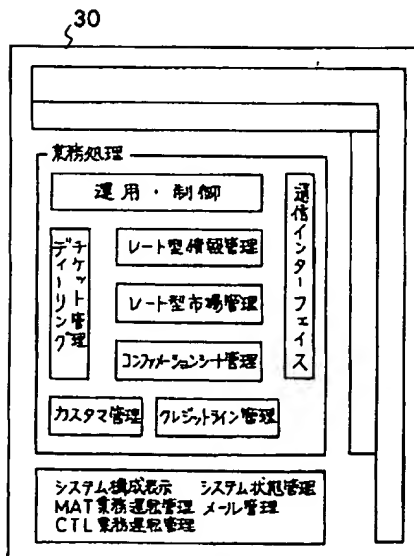 30
業務処理
運用・制御
通信インターフェイス
ディーリング
チケット管理
レート型情報管理
レート型市場管理
コンファメーションシート管理
カスタマ管理
クレジットライン管理
システム構成表示 システム状態管理
MAT業務運営管理 メール管理
CTL業務運営管理